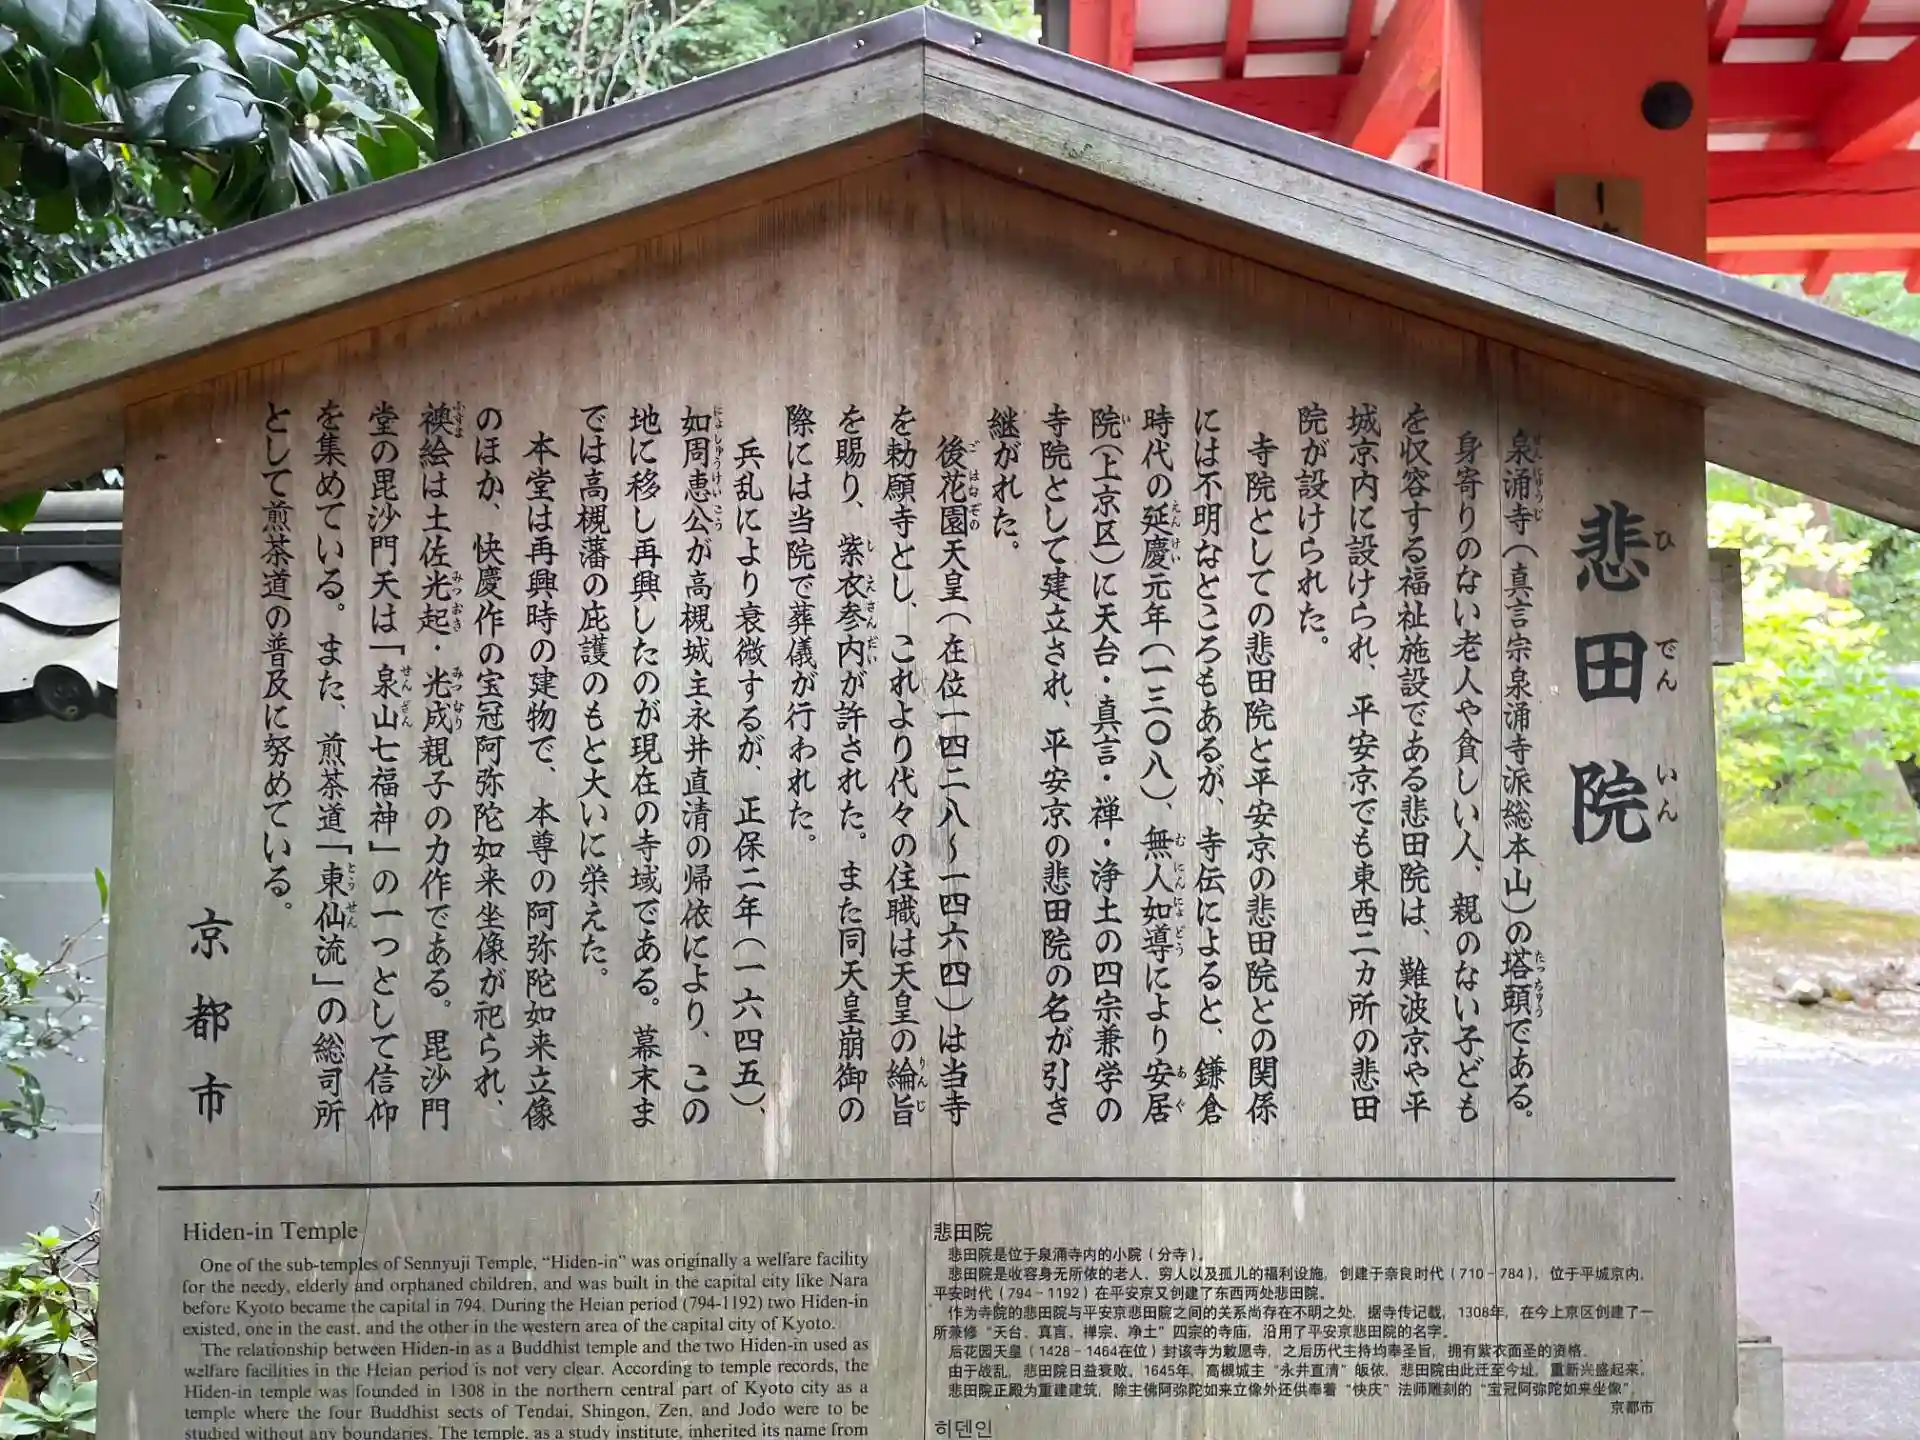 悲田院
ひでんいん
泉涌寺（真言宗泉涌寺派総本山）の塔頭である。
身寄りのない老人や貧しい人、親のない子ども
を収容する福祉施設である悲田院は、難波京や平
城京内に設けられ、平安京でも東西二カ所の悲田
院が設けられた。
寺院としての悲田院と平安京の悲田院との関係
には不明なところもあるが、寺伝によると、鎌倉
時代の延慶元年（一三〇八）、無人如導により安居
院（上京区）に天台・真言・禅・浄土の四宗兼学の
寺院として建立され、平安京の悲田院の名が引き
継がれた。
後花園天皇（在位一四二八～一四六四）は当寺
を勅願寺とし、これより代々の住職は天皇の綸旨
を賜り、紫衣参内が許された。また同天皇崩御の
際には当院で葬儀が行われた。
兵乱により衰微するが、正保二年（一六四五）、
如周恵公が高槻城主永井直清の帰依により、この
地に移し再興したのが現在の寺域である。幕末ま
では高槻藩の庇護のもと大いに栄えた。
本堂は再興時の建物で、本尊の阿弥陀如来立像
のほか、快慶作の宝冠阿弥陀如来坐像が祀られ、
襖絵は土佐光起・光成親子の力作である。毘沙門
堂の毘沙門天は「泉山七福神」の一つとして信仰
を集めている。また、煎茶道「東仙流」の総司所
として煎茶道の普及に努めている。
京都市
Hiden-in Temple
One of the sub-temples of Sennyuji Temple, “Hiden-in” was originally a welfare facility
for the needy, elderly and orphaned children, and was built in the capital city like Nara
before Kyoto became the capital in 794. During the Heian period (794-1192) two Hiden-in
existed, one in the east, and the other in the western area of the capital city of Kyoto.
The relationship between Hiden-in as a Buddhist temple and the two Hiden-in used as
welfare facilities in the Heian period is not very clear. According to temple records, the
Hiden-in temple was founded in 1308 in the northern central part of Kyoto city as a
temple where the four Buddhist sects of Tendai, Shingon, Zen, and Jodo were to be
studied without any boundaries. The temple, as a study institute, inherited its name from
悲田院
悲田院是位于泉涌寺内的小院（分寺）。
悲田院是收容身无所依的老人、穷人以及孤儿的福利设施，创建于奈良时代（710－784），位于平城京内，
平安时代（794－1192）在平安京又创建了东西两处悲田院。
作为寺院的悲田院与平安京悲田院之间的关系尚存在不明之处，据寺传记载，1308年，在今上京区创建了一
所兼修“天台、真言、禅宗、净土”四宗的寺庙，沿用了平安京悲田院的名字。
后花园天皇（1428－1464在位）封该寺为敕愿寺，之后历代主持均奉圣旨，拥有紫衣面圣的资格。
由于战乱，悲田院日益衰败。1645年，高槻城主“永井直清”皈依，悲田院由此迁至今址，重新兴盛起来。
悲田院正殿为重建建筑，除主佛阿弥陀如来立像外还供奉着“快庆”法师雕刻的“宝冠阿弥陀如来坐像”。
京都市
히덴인